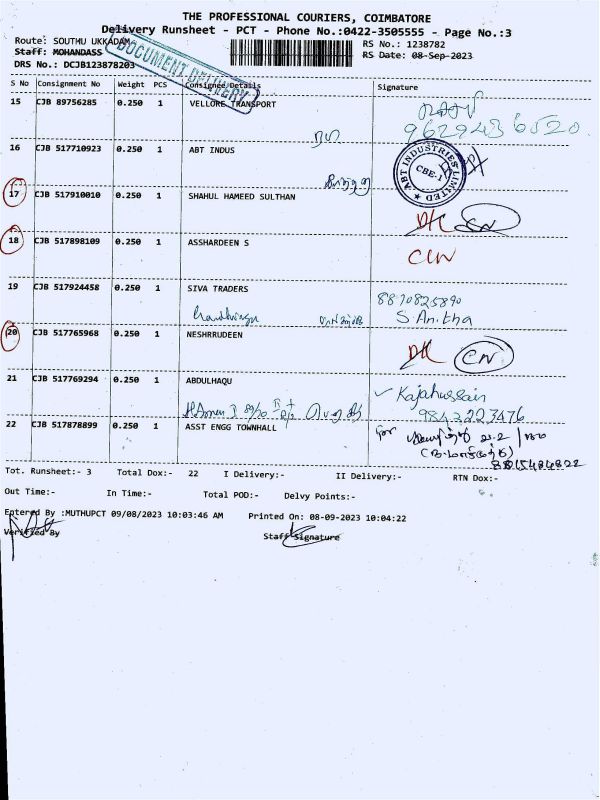 THE PROFESSIONAL COURIERS, COIMBATORE
Delivery Runsheet - PCT - Phone No.:0422-3505555 - Page No.:3
Route: SOUTMU UKKADAM
RS No.: 1238782
Staff: MOHANDASS
RS Date: 08-Sep-2023
DRS No.: DCJB123878203
DOCUMENT DELIVERY
S No Consignment No Weight PCS Consignee Details Signature
15 CJB 89756285 0.250 1 VELLORE TRANSPORT
9629436520
16 CJB 517710923 0.250 1 ABT INDUS
ABT INDUSTRIES LIMITED CBE-1
17 CJB 517910010 0.250 1 SHAHUL HAMEED SULTHAN
DL CN
18 CJB 517898109 0.250 1 ASSHARDEEN S
CN
19 CJB 517924458 0.250 1 SIVA TRADERS
8870825890
S.Anitha
20 CJB 517765968 0.250 1 NESHRRUDEEN
DL CN
21 CJB 517769294 0.250 1 ABDULHAQU
Kajahussain
9842223476
22 CJB 517878899 0.250 1 ASST ENGG TOWNHALL
for
Tot. Runsheet:- 3 Total Dox:- 22 I Delivery:- II Delivery:- RTN Dox:-
Out Time:- In Time:- Total POD:- Delvy Points:-
Entered By :MUTHUPCT 09/08/2023 10:03:46 AM Printed On: 08-09-2023 10:04:22
Verified By Staff Signature